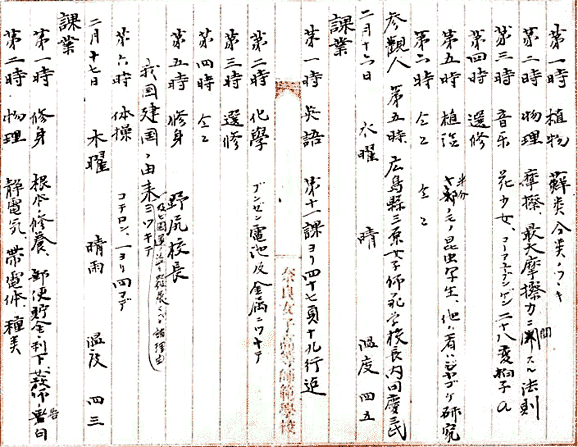 第一時 植物 蘚類、分類ノツヾキ
第二時 物理 摩擦、最大摩擦力ニ関スル法則
第三時 音楽 花少女、
第四時 選修
第五時 植治
第六時 仝上 仝上
参観人 第五時 広島縣三原女子師範学校長内田慶民
二月十六日 水曜 晴 温度 四五
課業
第一時 英語 第十一課ヨリ四十七頁十九行迄
第二時 化學 ブンゼン電池及金属ニツキテ
第三時 選修
第四時 仝上
第五時 修身 野尻校長
我国建国ノ由来ニツキテ
第六時 体操 コチロン、一ヨリ四マデ
二月十七日 木曜 晴雨 温度 四三
課業
第一時 修身 根本ノ修養、郵便貯金利下
第二時 物理 静電気、帯電体ノ種類
奈良女子高等師範學校